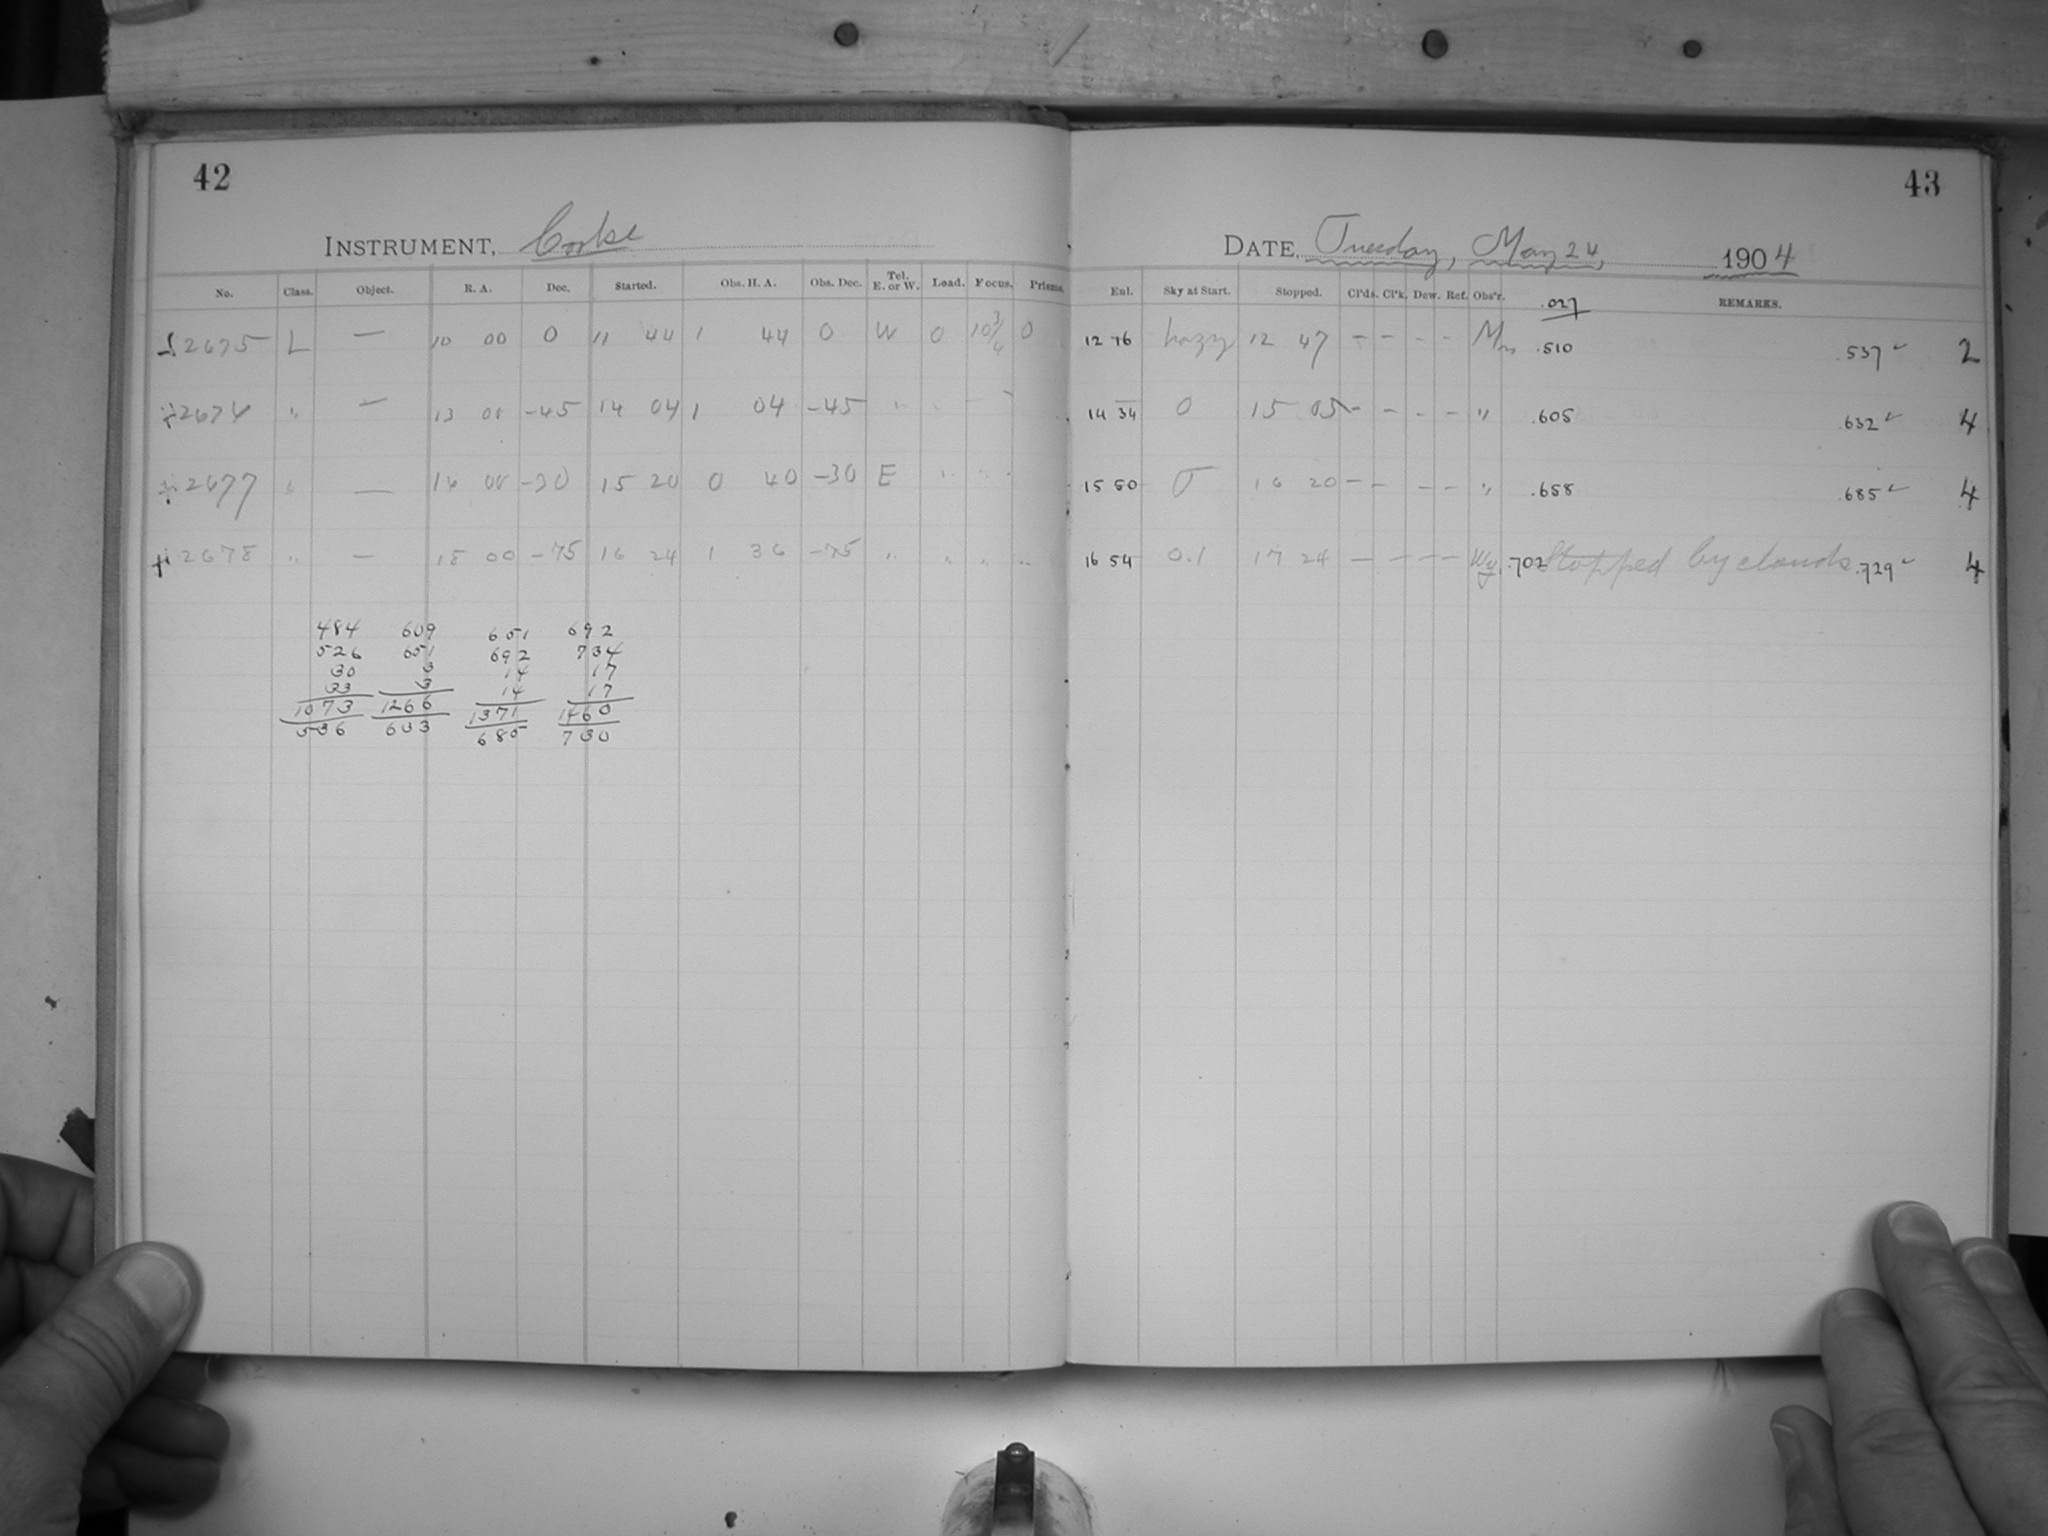 42
INSTRUMENT, Cooke
No. Class. Object. R. A. Dec. Started. Obs. H. A. Obs. Dec. Tel. E. or W. Load. Focus. Prisms.
2675 L — 10 00 0 11 44 1 44 0 W 0 10 3/4 0
" — 13 00 -45 14 04 1 04 -45 " " "
2677 — -30 15 20 0 40 -30 E " " "
2678 " — 18 00 -75 16 24 1 36 -75 " " " "
484 609 651 692
526 651 692 734
30 3 14 17
33 3 14 17
1073 1266 1371 1460
536 633 685 730
43
DATE, Tuesday, May 24, 1904
Enl. Sky at Start. Stopped. Cl'ds. Cl'k. Dew. Ref. Obs'r. REMARKS.
.027
12 16 hazy 12 47 – – – – .510 .537 ✓ 2
14 34 0 15 05 – – – – " .605 .632 ✓ 4
15 50 16 20 – – – – " .658 .685 ✓ 4
16 54 0.1 17 24 – – – – Wy. .702 Stopped by clouds .729 ✓ 4